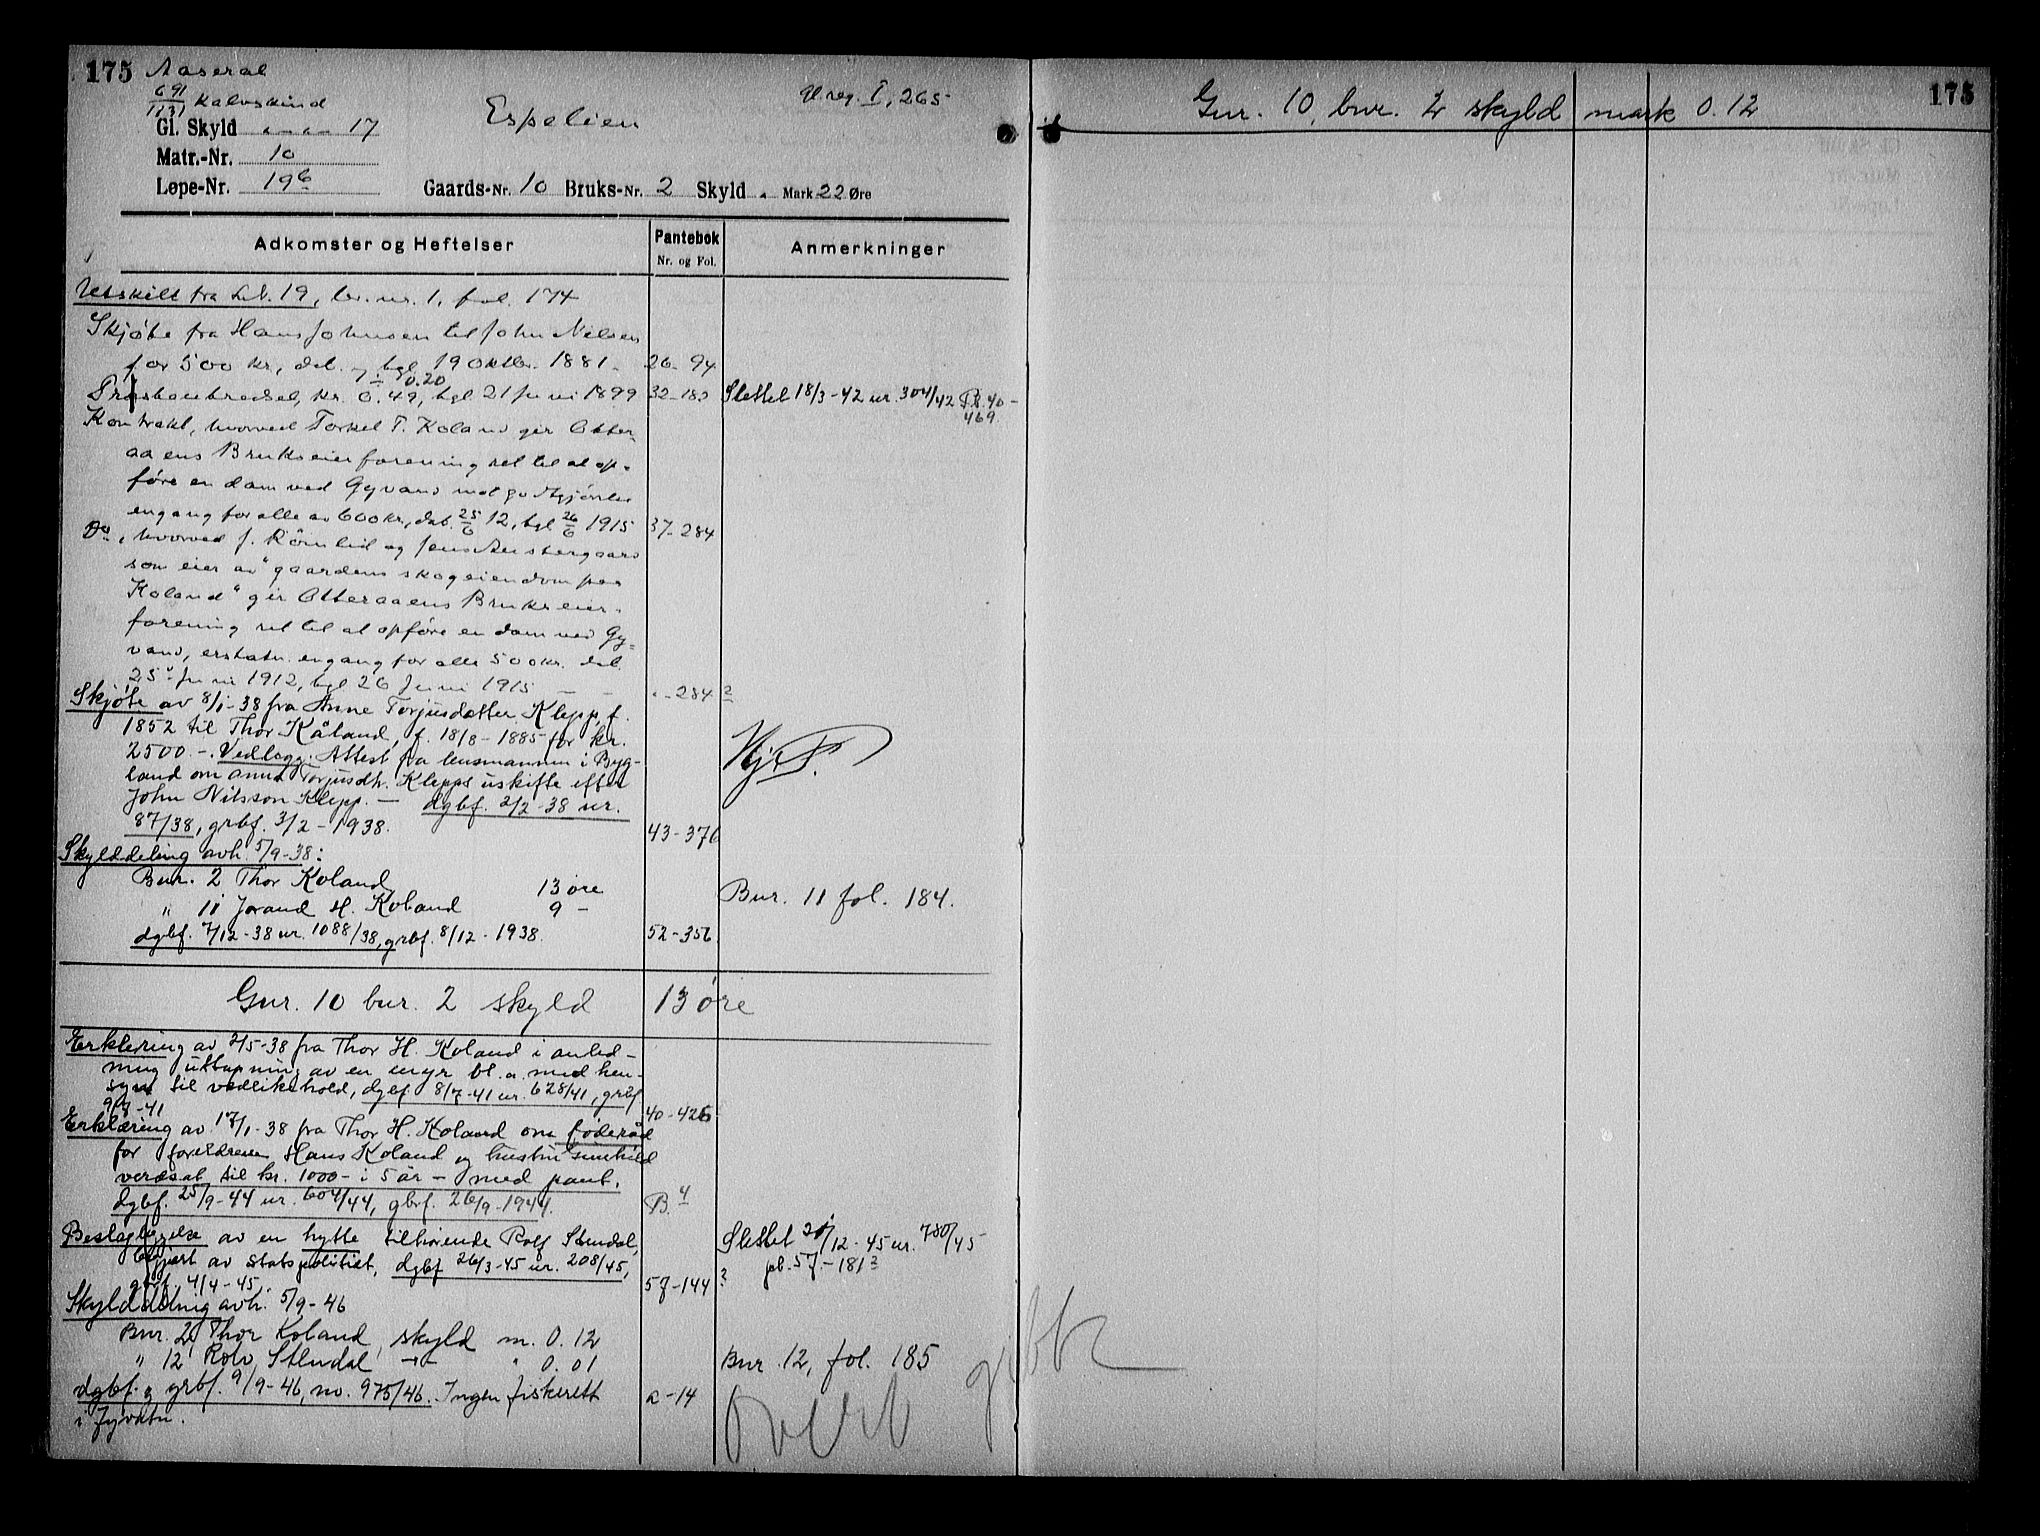 175 Aaseral
691/1131 Kalvskind
Gl. Skyld " - " - 17
Espelien
U.reg. I, 265
Matr.-Nr. 10
Løpe-Nr. 19b
Gaards-Nr. 10 Bruks-Nr. 2 Skyld " Mark 22 Øre
Adkomster og Heftelser
Pantebok
Nr. og Fol.
Anmerkninger
Utskilt fra L.b. 19, br. nr. 1, fol. 174
Skjøte fra Hans Johnsen til John Nilsen
for 500 kr, dat. og tgl 19 oktbr. 1881. 26-94
0.20
kr. 0.49, tgl 21 Juni 1899 32-182 Slettet 18/3-42 nr. 304/42 P.b. 40-
469.
Kontrakt, hvorved Torkel T. Koland gir Otter-
aaens Brukseierforening ret til at op-
føre en dam ved Gyvand mot godtgjørelse
engang for alle av 600 kr, dat. 25/6 12, tgl 26/6 1915 37-284
Do, hvorved J. Rømlid og Jens Austergaard
som eier av "gaardens skogeiendom paa
Koland" gir Otteraaens Brukseier-
forening ret til at opføre en dam ved Gy-
vand, erstatn. engang for alle 500 kr. dat.
25de Juni 1912, tgl 26 Juni 1915 " - 284 2
Skjøte av 8/1-38 fra Anne Torjusdatter Klepp, f.
1852 til Thor Kåland, f. 18/8-1885 for kr.
2500.-. Vedlagg: Attest fra lensmannen i Byg-
land om Anne Torjusdtr. Klepps uskifte efter
John Nilsson Klepp. — dgbf. 2/2-38 nr.
87/38, grbf. 3/2-1938. 43-376
Hj.F.
Skylddeling avh. 5/9-38:
Bnr. 2 Thor Koland 13 øre
" 11 Jorand H. Koland 9 - Bnr. 11 fol. 184.
dgbf. 7/12-38 nr. 1088/38, grbf. 8/12-1938. 52-356
Gnr. 10 bnr. 2 skyld 13 øre
Erklæring av 2/5-38 fra Thor H. Koland i anled-
ning uttapning av en myr bl.a. med hen-
syn til vedlikehold, dgbf 8/7-41 nr. 628/41, grbf
9/7-41 40-426
Erklæring av 17/1-38 fra Thor H. Koland om føderåd
for foreldrene Hans Koland og hustru Gunhild
verdsat til kr. 1000- i 5 år - med pant.
dgbf. 25/9-44 nr. 604/44, gbrf. 26/9-1944. B. 4
Beslagleggelse av en hytte tilhørende Rolf Stendal,
begjært av statspolitiet, dgbf 26/3-45 nr. 208/45,
grbf. 4/4-45. 57-144 2
Slettet 20/12-45 nr. 780/45
pb. 57-181 2
Skylddeling avh. 5/9-46
Bnr. 2, Thor Koland, skyld m. 0.12
" 12 Rolv Stendal -"- " 0.01 Bnr. 12, fol. 185
dgbf. og grbf. 9/9-46, no. 975/46. Ingen fiskerett
i Gyvatn. a-14
175
Gnr. 10, bnr. 2 skyld mark 0.12